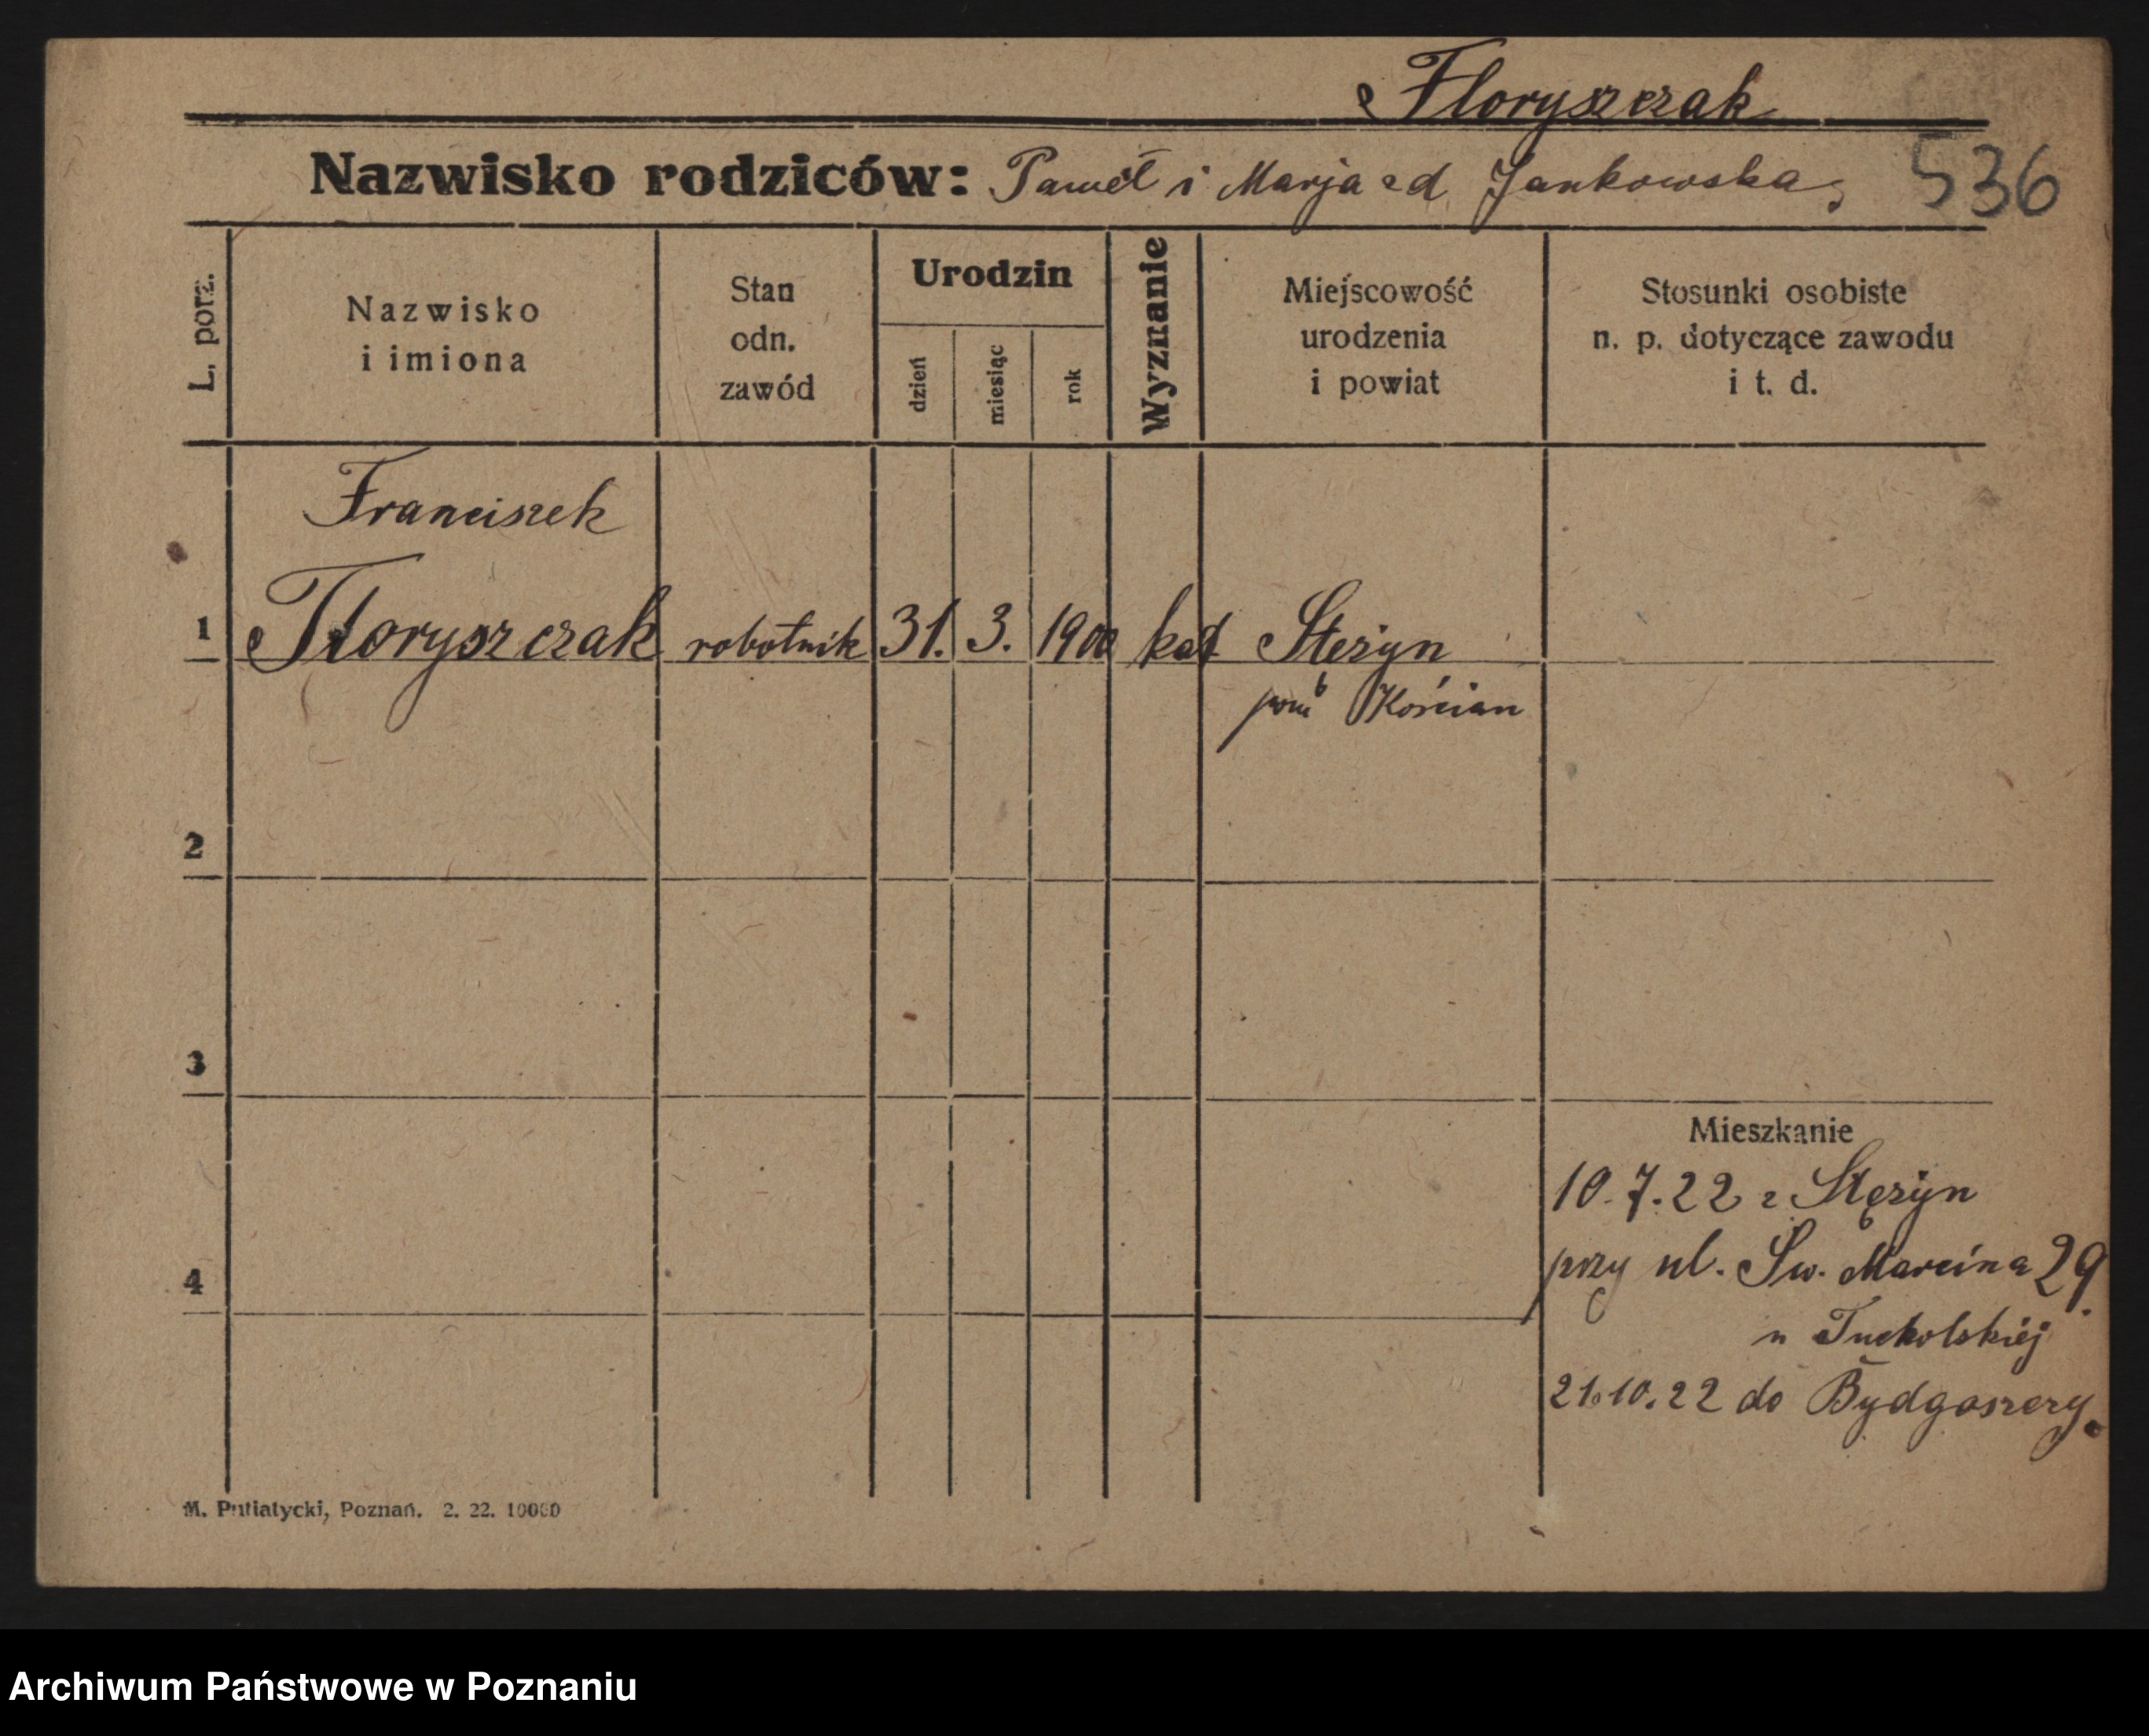 Floryszczak
Nazwisko rodziców: Paweł i Marja zd Jankowska
536
L. porz.
Nazwisko
i imiona
Stan
odn.
zawód
Urodzin
dzień
miesiąc
rok
Wyznanie
Miejscowość
urodzenia
i powiat
Stosunki osobiste
n. p. dotyczące zawodu
i t. d.
Franciszek
1 Floryszczak robotnik 31. 3. 1900 kat Stężyn
pow Kościan
2
3
Mieszkanie
10.7.22 z Stężyn
przy ul. Św. Marcina 29.
4
u Tuckolskiej
21.10.22 do Bydgoszczy.
M. Putiatycki, Poznań. 2. 22. 10000
Archiwum Państwowe w Poznaniu